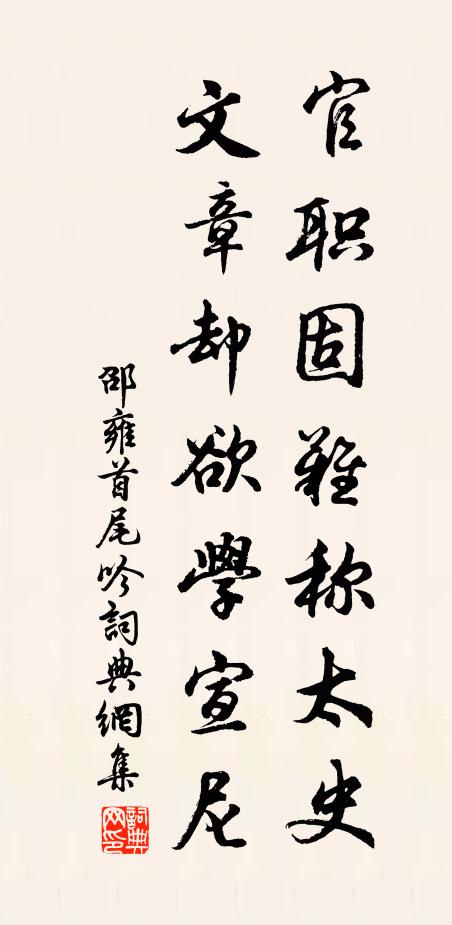 官职固難称太史
文章却欲學宣尼
邵雍首尾吟詞典網集
詞典網印